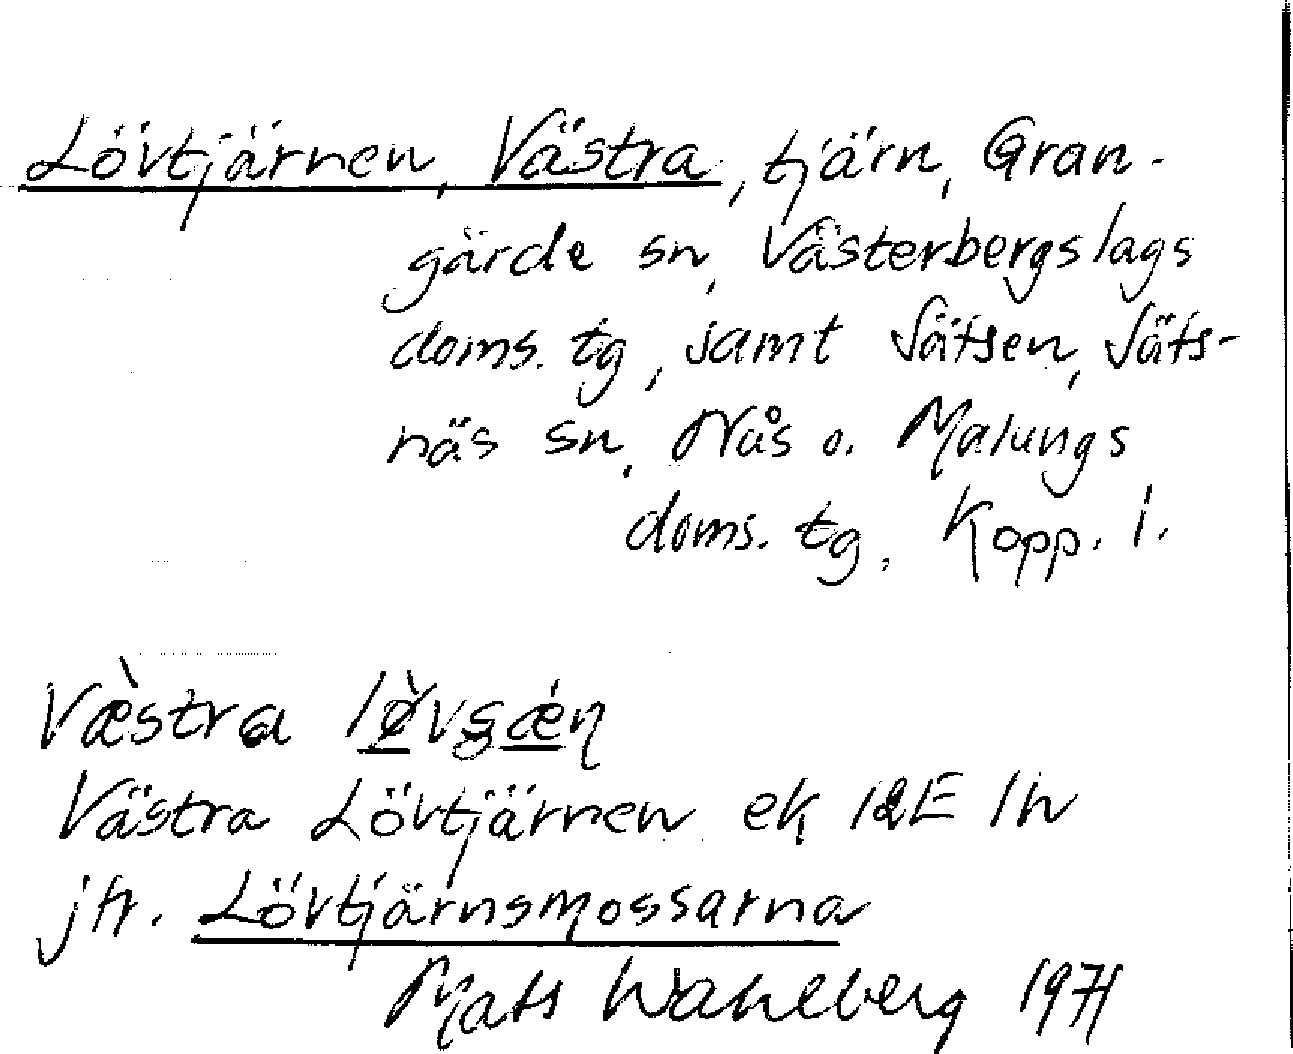 Lövtjärnen, Västra, tjärn, Gran-
gärde sn, Västerbergslags
doms. tg, samt Sätsen, Säts-
näs sn, Nås o. Malungs
doms. tg, Kopp. l.
Væ̀stra
Västra Lövtjärnen ek 12E 1h
jfr. Lövtjärnsmossarna
Mats Wahlberg 1971